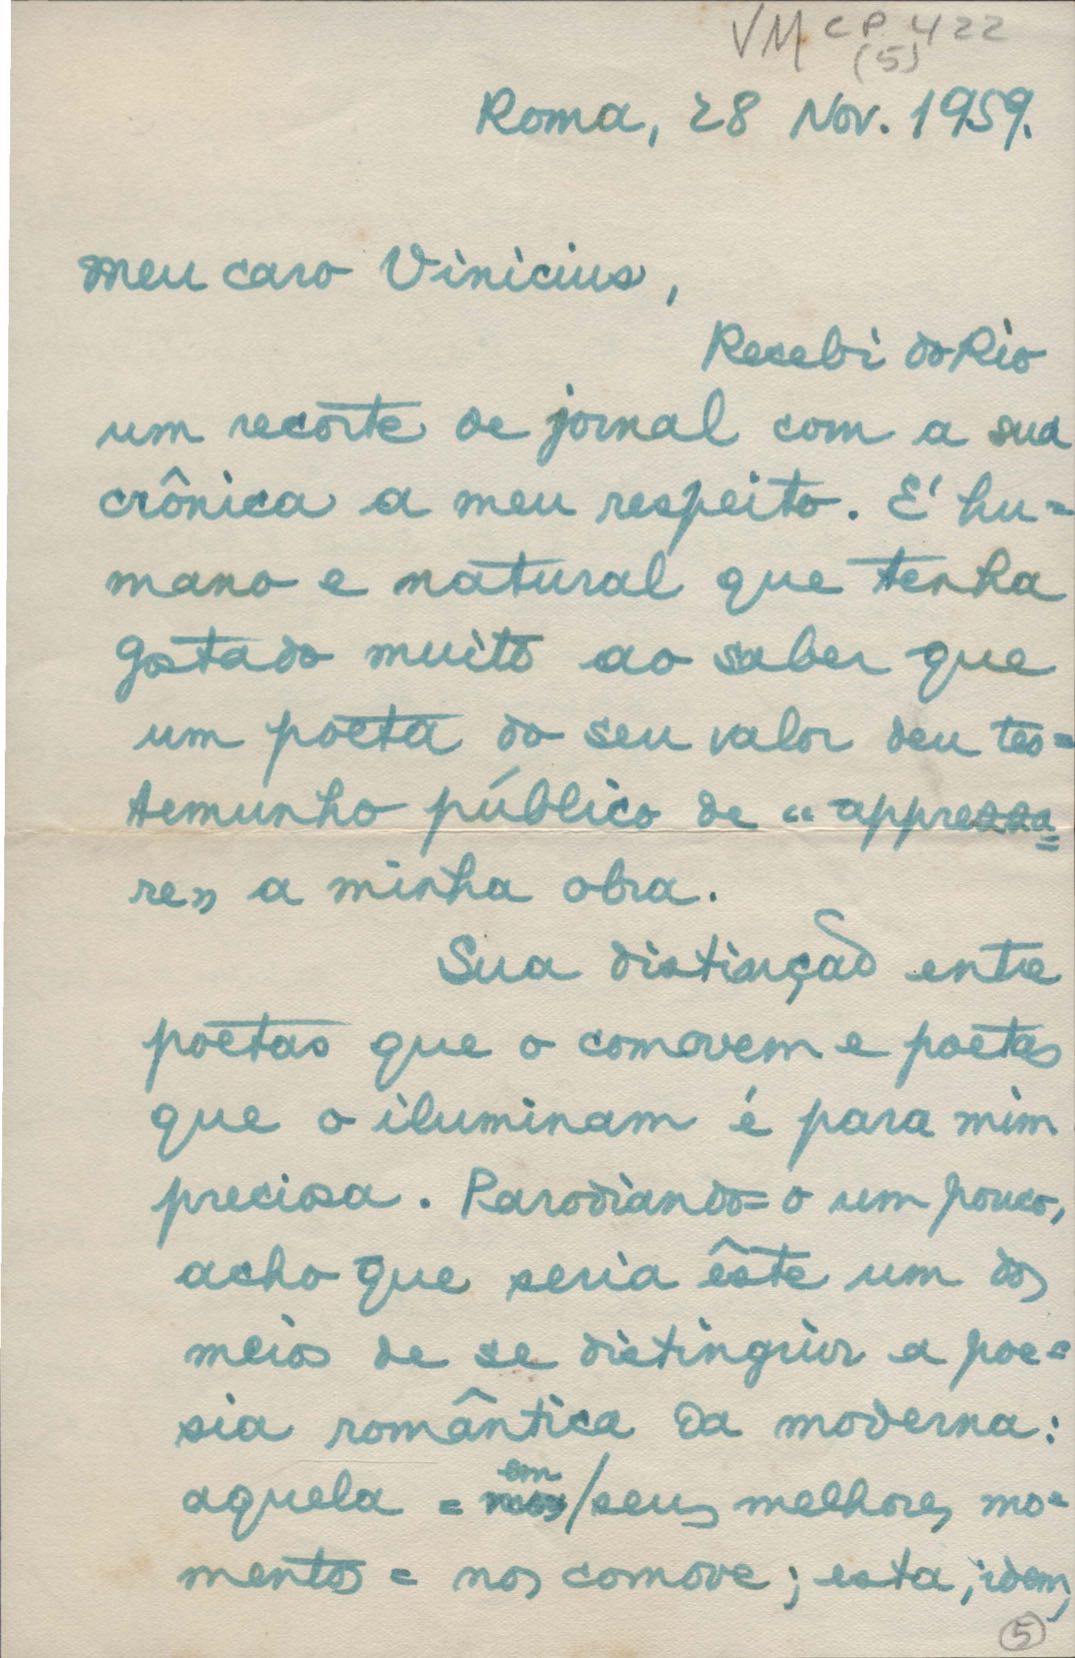 VM CP 422
(5)
Roma, 28 Nov. 1959.
Meu caro Vinicius,
Recebi do Rio
um recorte de jornal com a sua
crônica a meu respeito. E' hu=
mano e natural que tenha
gostado muito ao saber que
um poeta do seu valor deu tes=
temunho público de "apprezza=
re" a minha obra.
Sua distinção entre
poetas que o comovem e poetas
que o iluminam é para mim
preciosa. Parodiando=o um pouco,
acho que seria êste um dos
meios de se distinguir a poe=
sia romântica da moderna:
aquela = em / seus melhores mo=
mentos = nos comove; esta, idem,
5